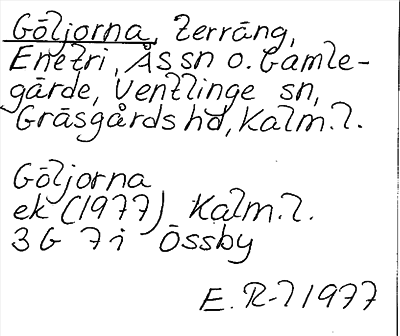 Göljorna, Terräng,
Enetri, Ås sn o. Gamle-
gärde, Ventlinge sn,
Gräsgårds hd, Kalm.l.
Göljorna
ek (1977) Kalm.l.
3G 7i Össby
E. R-l 1977